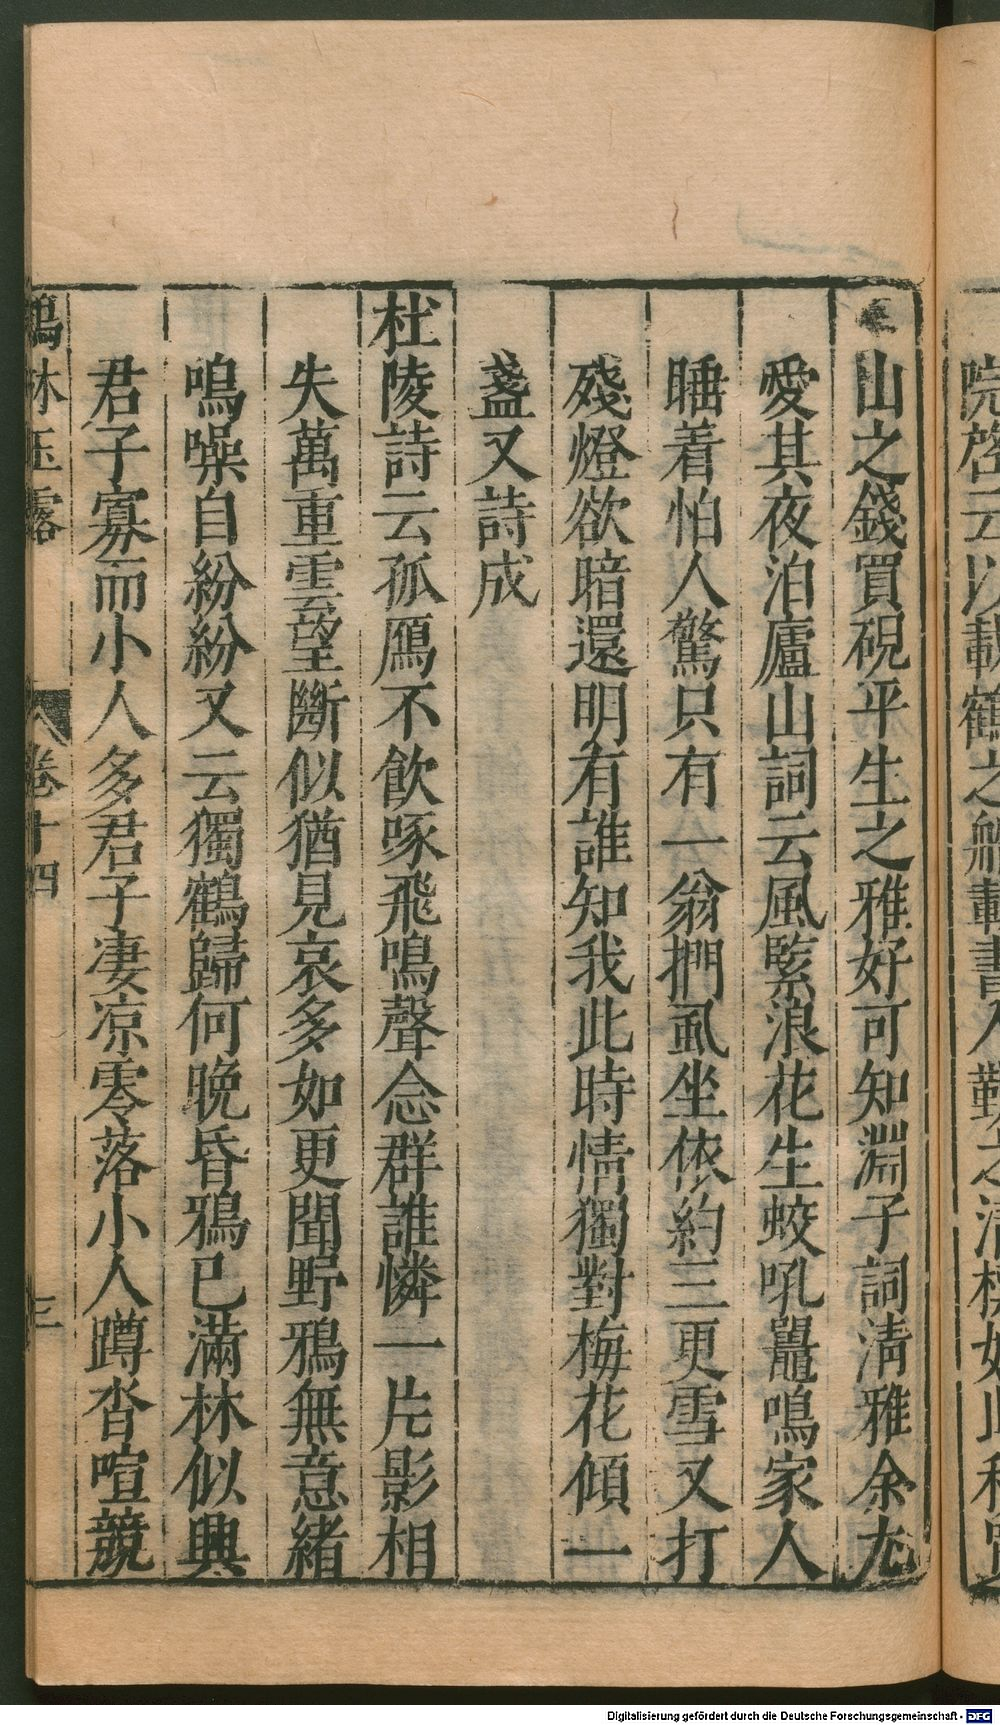 院啓云以載鶴之船載書入
山之錢買硯平生之雅好可知淵子詞清雅余尤
愛其夜泊廬山詞云風緊浪花生蛟吼鼉鳴家人
睡着怕人驚只有一翁捫虱坐依約三更雪又打
殘燈欲暗還明有誰知我此時情獨對梅花傾一
盞又詩成
杜陵詩云孤鴈不飲啄飛鳴聲念群誰憐一片影相
失萬重雲望斷似猶見哀多如更聞野鴉無意緒
鳴噪自紛紛又云獨鶴歸何晚昏鴉已滿林似興
君子寡而小人多君子凄凉零落小人蹲沓喧競
鶴林玉露 卷十四 三
Digitalisierung gefördert durch die Deutsche Forschungsgemeinschaft - DFG